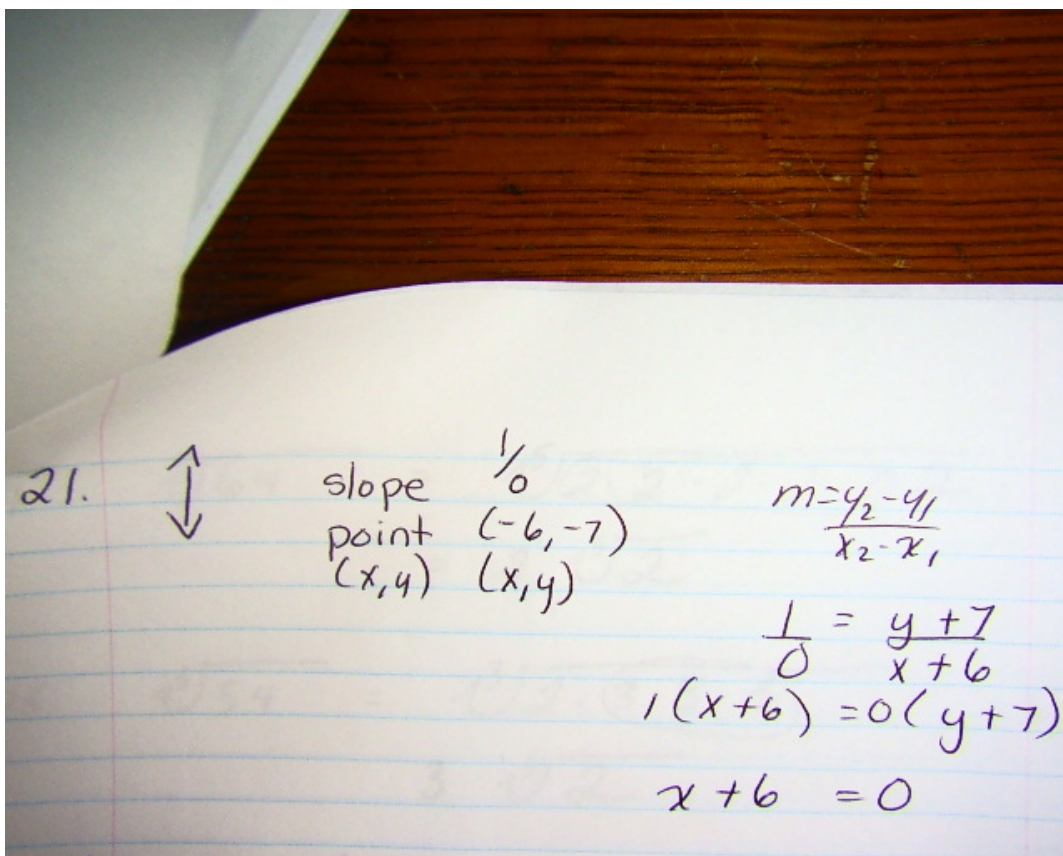 21. slope 1/0
point (-6, -7)
(x, y) (x, y)
m = y₂ - y₁
x₂ - x₁
1 = y + 7
0 x + 6
1(x + 6) = 0(y + 7)
x + 6 = 0